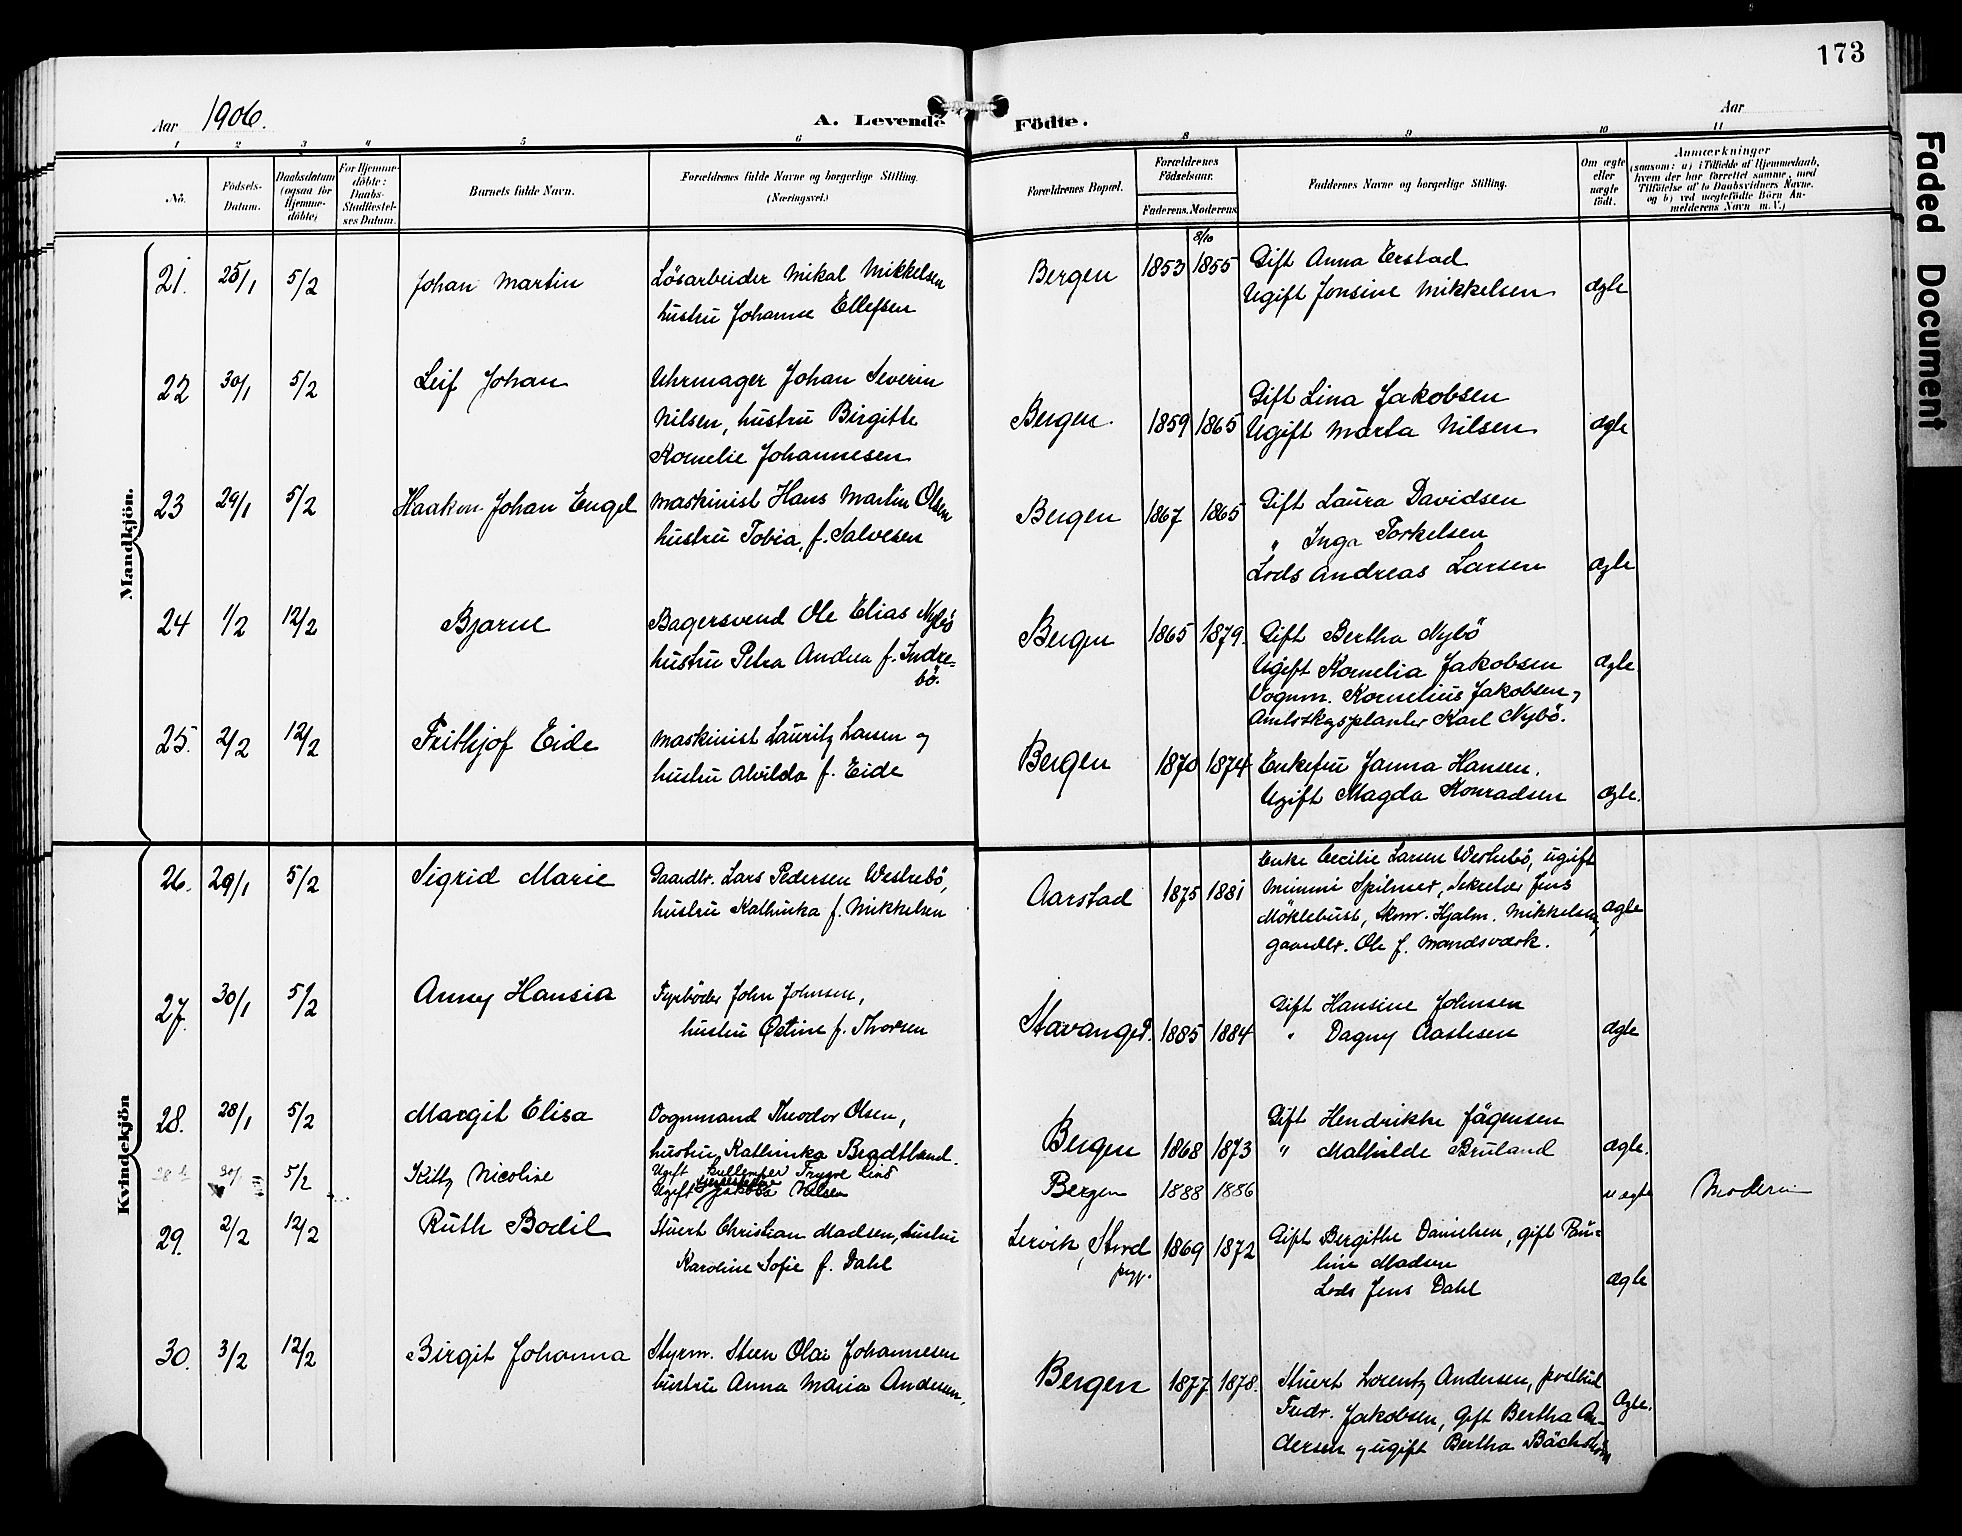 173
Aar 1906.
A. Levende Födte.
Aar
1 2 3 4 5 6 8 9 10 11
No.
Födsels-Datum.
Daabsdatum (ogsaa for Hjemme-döbte)
For Hjemme-döbte: Daabs-Stadfæstel-ses Datum.
Barnets fulde Navn.
Forældrenes fulde Navne og borgerlige Stilling.
(Næringsvei.)
Forældrenes Bopæl.
Forældrenes Födselsaar.
Faderens. Moderens.
Faddernes Navne og borgerlige Stilling.
Om ægte eller uægte födt.
Anmærkninger
(saasom: a) i Tilfælde af Hjemmedaab,
hvem der har forrettet samme, med
Tilföielse af to Daabsvidners Navne.
og b) ved uægtefödte Börn An-
melderens Navn m. V.)
Mandkjön.
21. 25/1 5/2 Johan Martin Lösarbeider Mikal Mikkelsen
hustru Johanne Ellefsen
Bergen 1853 8/10 1855 Gift Anna Erstad
Ugift Jonsine Mikkelsen ægte
22 30/1 5/2 Leif Johan Uhrmager Johan Severin
Nilsen, hustru Birgitte
Kornelie Johannesen
Bergen. 1859 1865 Gift Lina Jakobsen
Ugift Marta Nilsen ægte
23 29/1 5/2 Haakon Johan Engel Maskinist Hans Martin Olsen
hustru Tobia, f. Salvesen
Bergen 1867 1865 Gift Laura Davidsen
" Inga Torkelsen
Lods Andreas Larsen ægte
24 1/2 12/2 Bjarne Bagersvend Ole Elias Nybö
hustru Petra Andrea f. Indre-
bö.
Bergen 1865 1879. Gift Bertha Nybö
Ugift Kornelia Jakobsen ægte
Vognm. Kornelius Jakobsen,
Karl Nybö.
25. 2/2 12/2 Frithjof Eide Maskinist Lauritz Larsen og
hustru Alvilda f. Eide
Bergen 1870 1874 Enkefru Janna Hansen.
Ugift Magda Konradsen ægte.
Kvindekjön
26. 29/1 5/2 Sigrid Marie Gaardbr. Lars Pedersen Westrebö,
hustru Kathinka f. Mikkelsen
Aarstad 1875 1881 Enke Cecilie Larsen Westrebö, ugift
Mimmi Spilmer, Sekretær Jens
Möklebust, Skom. Hjalm. Mikkelsen, ægte
gaardbr. Ole f. Mandsværk.
27. 30/1 5/2 Anny Hansia Fyrböder John Johnsen,
hustru Østine f. Thorsen
Stavanger. 1885 1884 Gift Hansine Johnsen
" Dagny Aastesen ægte
28. 28/1 5/2 Margit Elisa Vognmand Theodor Olsen,
hustru Kathinka Bradtland.
Bergen 1868 1873 Gift Hendrikke Jägersen
" Mathilde Bruland ægte.
28 b 30/1 5/2 Kitty Nicoline Ugift Trygve Lind
Ugift Jakoba Nilsen
Bergen 1888 1886 uægte Moderen
29. 2/2 12/2 Ruth Bodil Stuert Christian Madsen, hustru
Karoline Sofie f. Dahl
Lervik, Stord
pgj. 1869 1872 Gift Bergithe Danielsen, gift Pau-
line Madsen
Lods Jens Dahl ægte
30. 3/2 12/2 Birgit Johanna Styrm. Steen Olai Johannesen
hustru Anna Maria Andersen,
Bergen 1877 1878. Stuert Lorentz Andersen, postbud
Fredr. Jakobsen, Gift Bertha An- Ægte.
dersen og ugift Bertha Bäckström
Faded Document